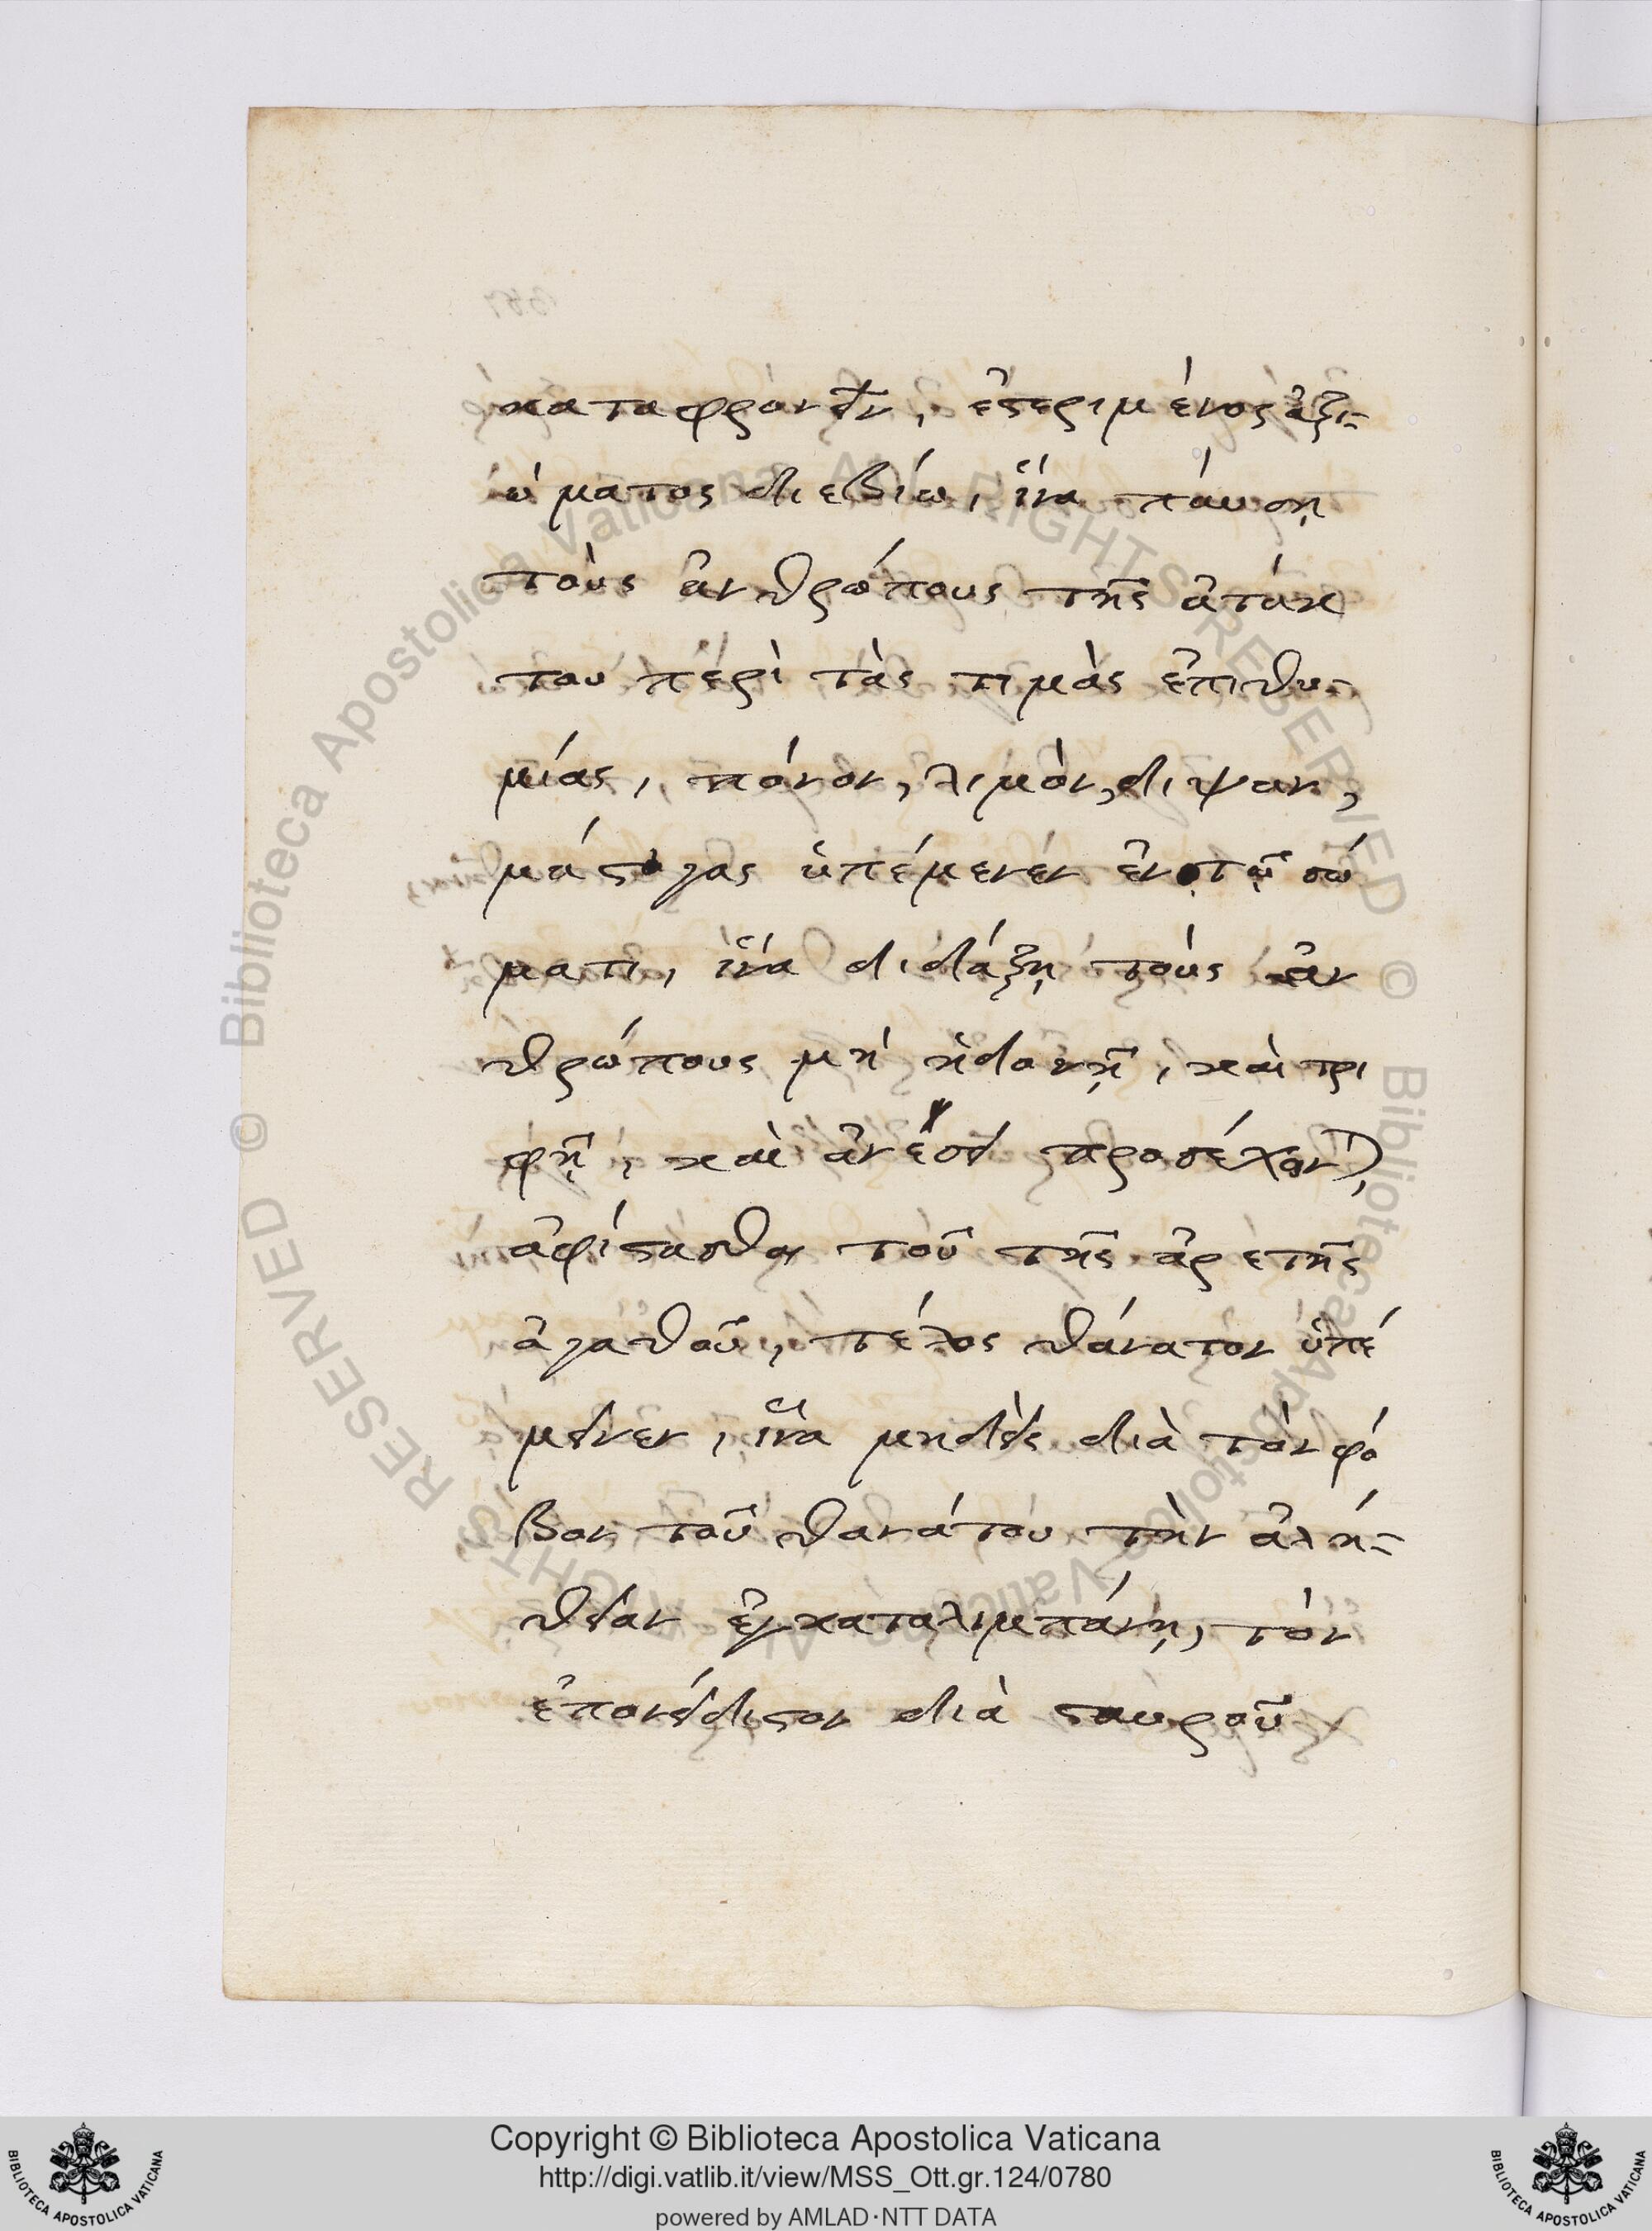 καταφρονεῖν, ἐστεριμένος ἀξι-
ώματος διεβίω, ἵνα παύσῃ
τοὺς ἀνθρώπους τῆς ἀτάκ
του περὶ τὰς τιμὰς ἐπιθυ-
μίας, πόνον, λιμὸν, διψαν,
μάστιγας ὑπέμενεν ἐν τῷ σώ
ματι, ἵνα διδάξῃ τοὺς ἀν
θρώπους μὴ ἡδονῇ, καὶ τρι
φῇ, καὶ ἀνέσει προσέχοντ(ας),
ἀφίστασθαι τοῦ τῆς ἀρετῆς
ἀγαθοῦ, τέλος θάνατον ὑπέ
μεινεν, ἵνα μηδεὶς διὰ τὸν φό
βον τοῦ θανάτου τὴν ἀλή-
θειαν ἐγκαταλιμπάνῃ, τὸν
ἐπονείδιστον διὰ σταυροῦ
Copyright © Biblioteca Apostolica Vaticana
http://digi.vatlib.it/view/MSS_Ott.gr.124/0780
powered by AMLAD·NTT DATA
© Biblioteca Apostolica Vaticana ALL RIGHTS RESERVED
© Biblioteca Apostolica Vaticana ALL RIGHTS RESERVED
BIBLIOTECA APOSTOLICA VATICANA
BIBLIOTECA APOSTOLICA VATICANA